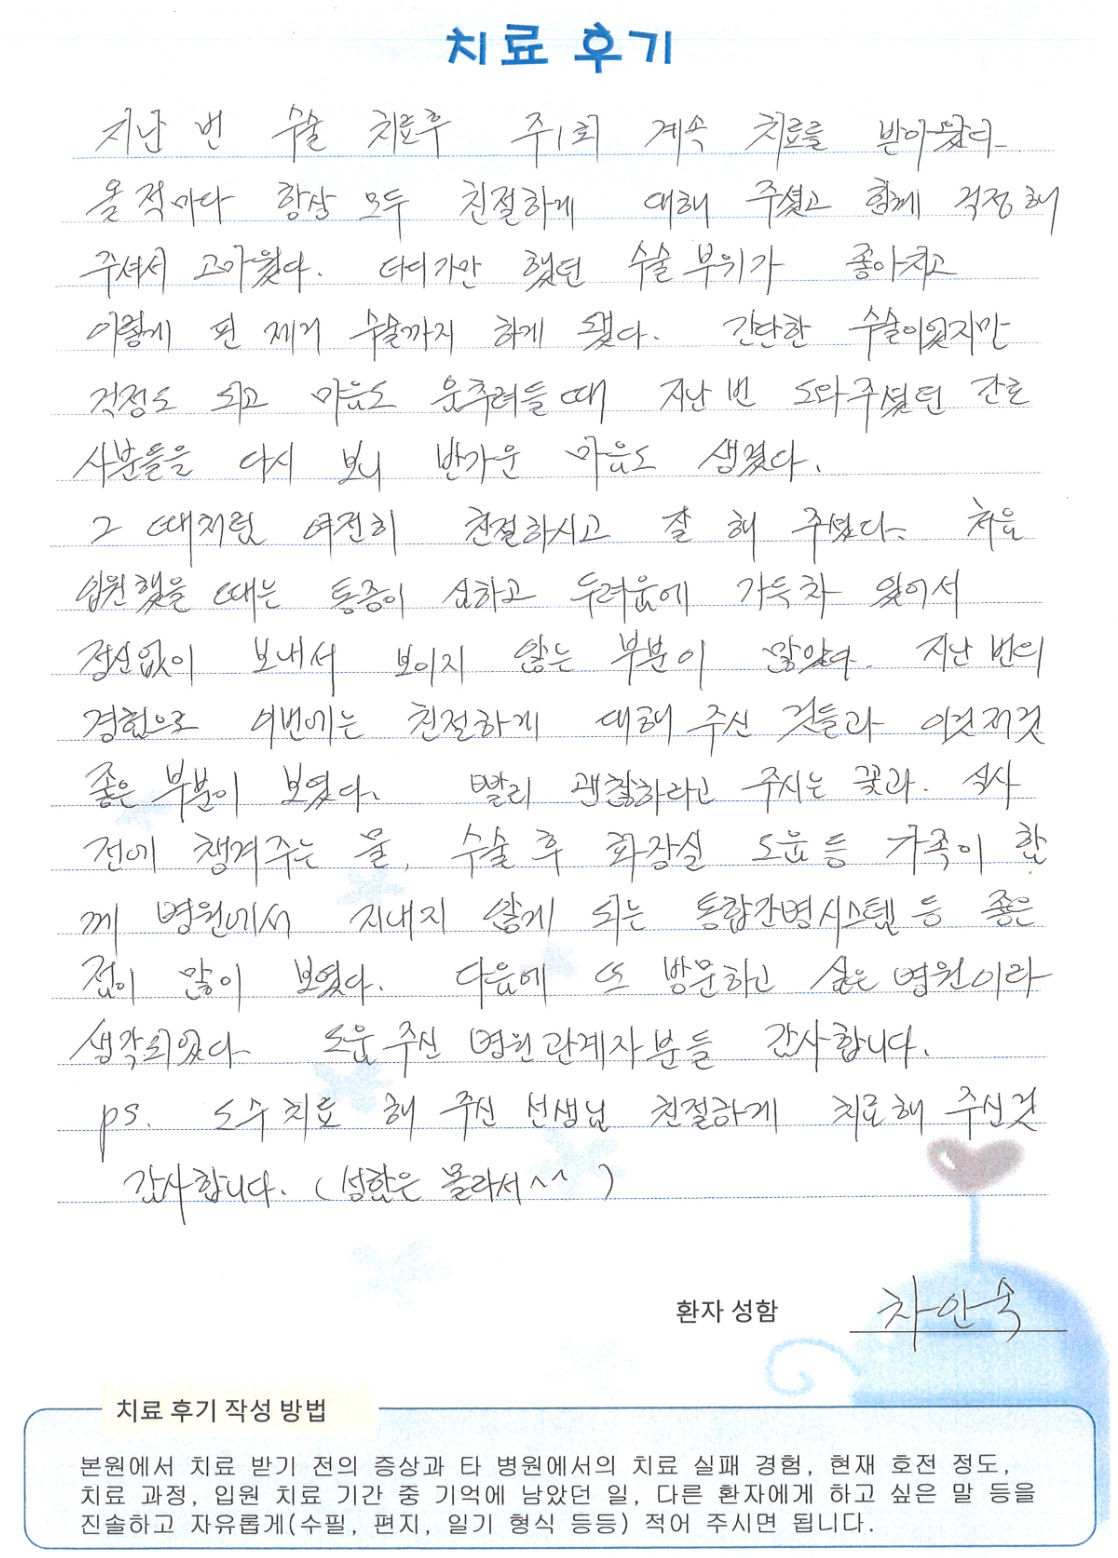 치료 후기
지난 번 수술 치료후 주1회 계속 치료를 받아왔다.
올 적마다 항상 모두 친절하게 대해 주셨고 함께 걱정해
주셔서 고마웠다. 더디기만 했던 수술 부위가 좋아지고
이렇게 핀 제거 수술까지 하게 됐다. 간단한 수술이었지만
걱정도 되고 마음도 움추려들 때 지난 번 도와주셨던 간호
사분들을 다시 보니 반가운 마음도 생겼다.
그 때처럼 여전히 친절하시고 잘 해 주셨다. 처음
입원했을 때는 통증이 심하고 두려움에 가득차 있어서
정신없이 보내서 보이지 않는 부분이 많았다. 지난 번의
경험으로 이번에는 친절하게 대해 주신 것들과 이것저것
좋은 부분이 보였다. 빨리 괜찮하라고 주시는 꽃과. 식사
전에 챙겨주는 물, 수술 후 화장실 도움 등 가족이 함
께 병원에서 지내지 않게 되는 통합간병시스템 등 좋은
점이 많이 보였다. 다음에 또 방문하고 싶은 병원이라
생각되었다. 도움 주신 병원관계자분들 감사합니다.
ps. 도수치료 해 주신 선생님 친절하게 치료해 주신것
감사합니다. (성함은 몰라서^^ )
환자 성함 차안숙
치료 후기 작성 방법
본원에서 치료 받기 전의 증상과 타 병원에서의 치료 실패 경험, 현재 호전 정도,
치료 과정, 입원 치료 기간 중 기억에 남았던 일, 다른 환자에게 하고 싶은 말 등을
진솔하고 자유롭게(수필, 편지, 일기 형식 등등) 적어 주시면 됩니다.